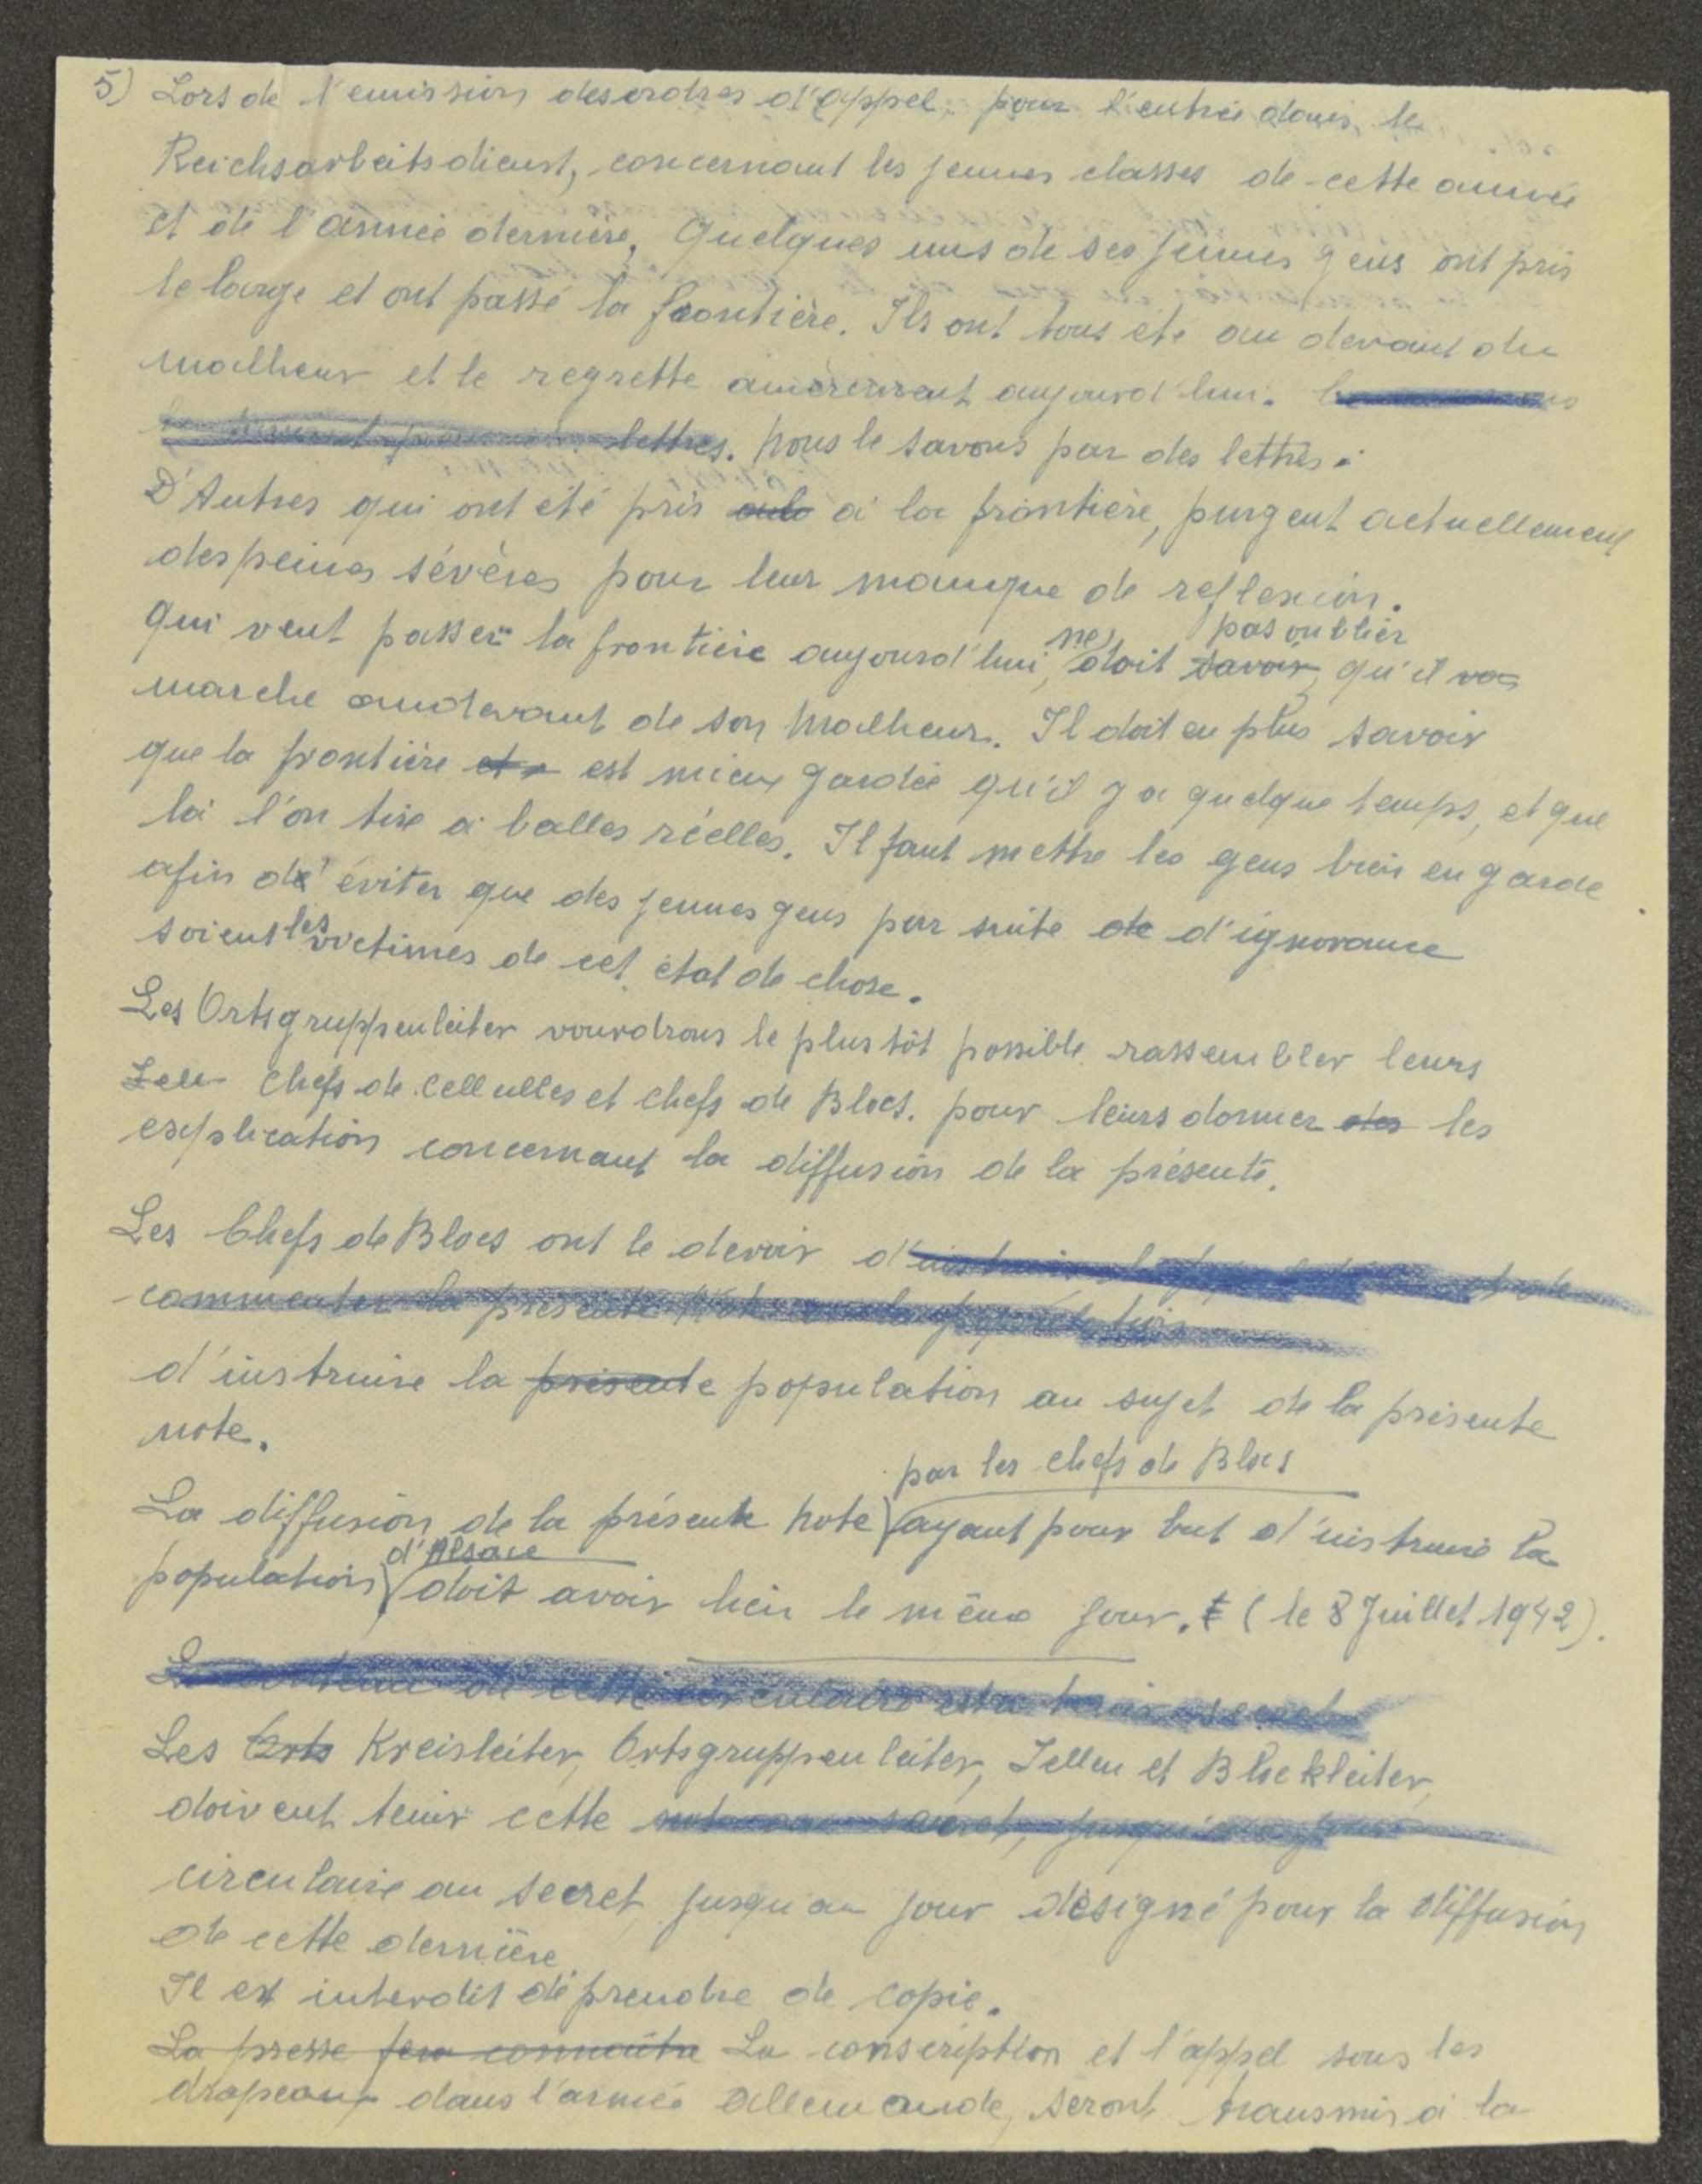 5) Lors de l'emission des ordres d'appel, pour l'entrée dans le
Reichsarbeitsdienst, concernant les jeunes classes de cette année
et de l'année dernière, Quelques uns de ses jeunes gens ont pris
le large et ont passé la frontière. Ils ont tous été au devant du
malheur et le regrette amèrement aujourd'hui.
lettres. Nous le savons par des lettres.
D'Autres qui ont été pris à la frontière, purgent actuellement
des peines sévères pour leur manque de reflexion.
pas oublier
Qui veut passer la frontière aujourd'hui, ne doit savoir, qu'il va
marche audevant de son Malheur. Il doit en plus savoir
que la frontière et est mieux gardée qu'il y a quelque temps, et que
là l'on tire à balles réelles. Il faut mettre les gens bien en garde
afin d'éviter que des jeunes gens par suite de d'ignorance
soient les victimes de cet état de chose.
Les Ortsgruppenleiter vourdrons le plus tôt possible rassembler leurs
Zell chefs de cellulles et chefs de Blocs. pour leurs donner des les
explication concernant la diffusion de la présente.
Les Chefs de Blocs ont le devoir d'instruire la population et de
commenter la présente Note à la population
d'instruire la présente population au sujet de la présente
note.
par les chefs de Blocs
La diffusion de la présente note ayant pour but d'instruire la
d'Alsace
population doit avoir lieu le même jour. (le 8 Juillet 1942).
Le contenu de cette circulaire est à tenir secret
Les Orts Kreisleiter, Ortsgruppenleiter, Zellen et Blockleiter,
doivent tenir cette secret,
circulaire au secret jusqu'au jour désigné pour la diffusion
de cette dernière.
Il est interdit de prendre de copie.
La presse fera connaître La conscription et l'appel sous les
drapeaux dans l'armée Allemande, seront transmis à la